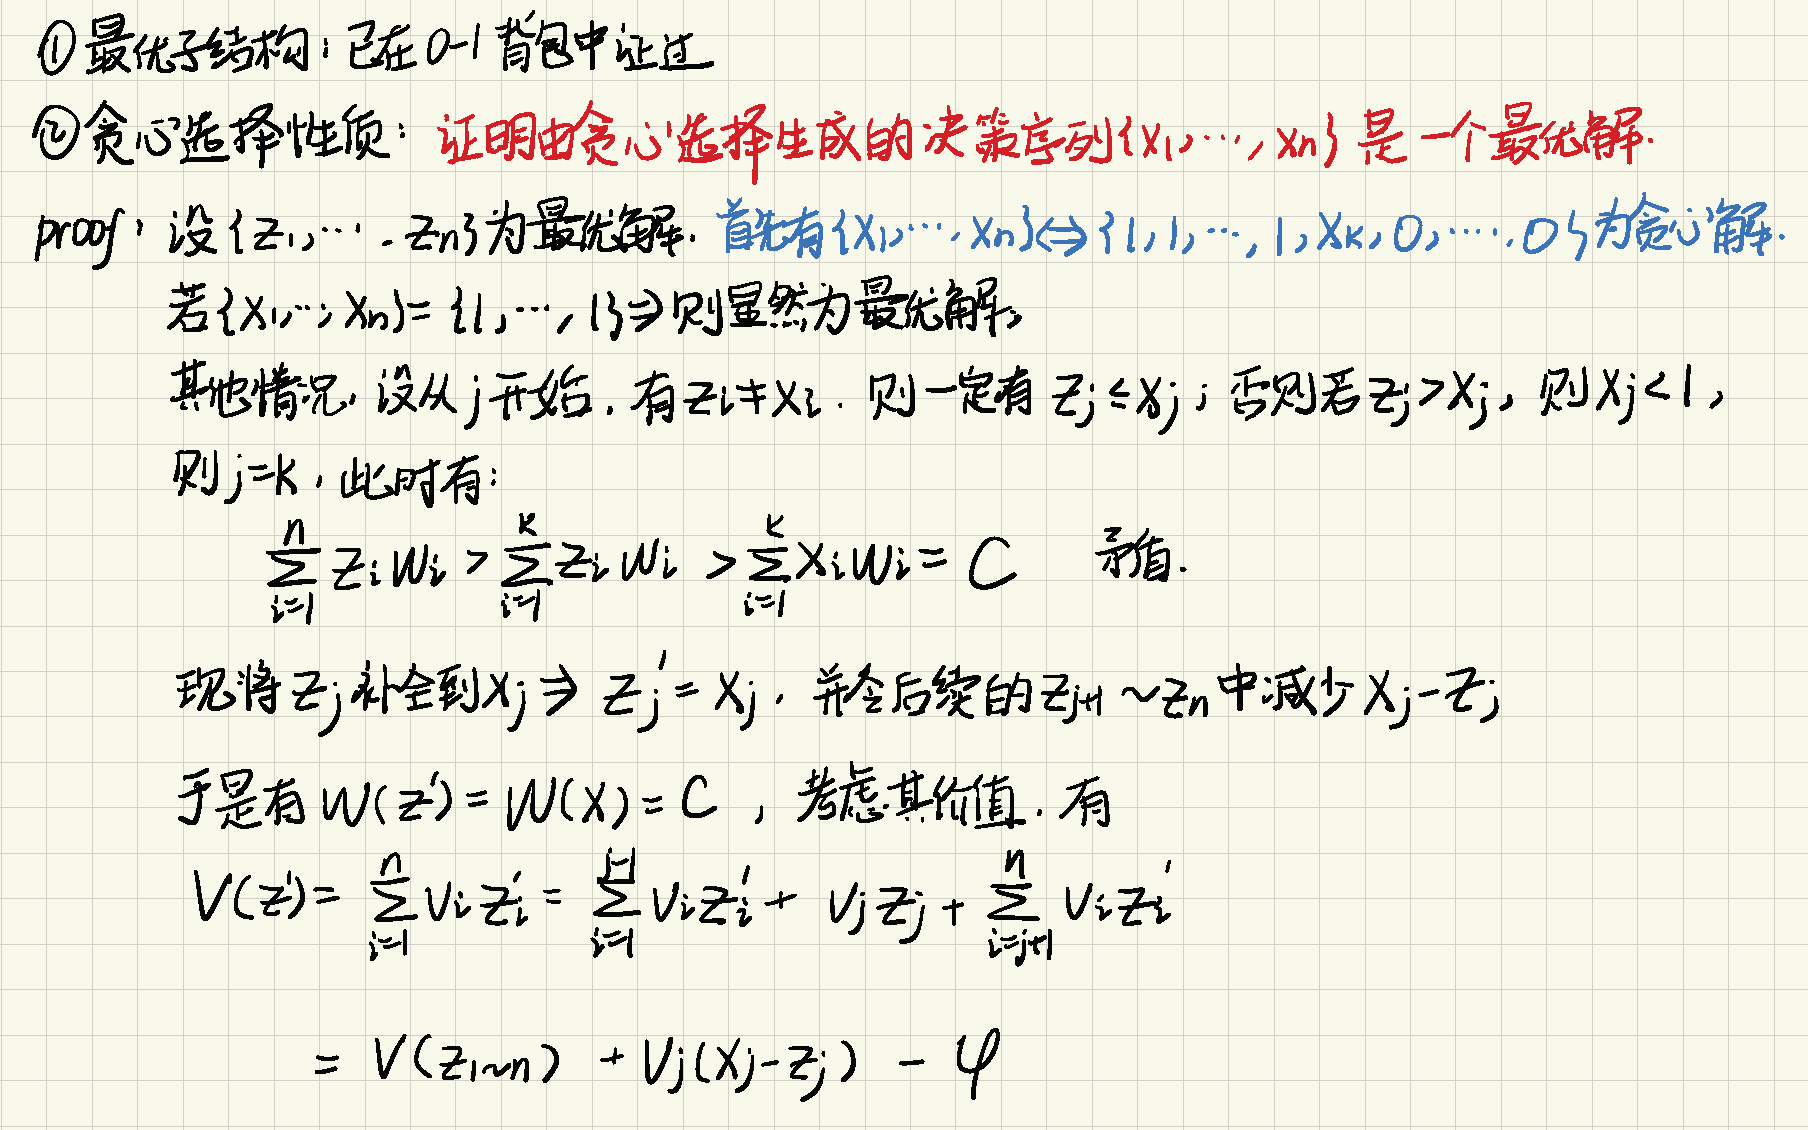 ①最优子结构：已在0-1背包中证过
②贪心选择性质：证明由贪心选择生成的决策序列{x₁,…,xn}是一个最优解.
proof：设{z₁,…,zn}为最优解. 首先有{x₁,…,xn}⇔{1,1,…,1,xk,0,…,0}为贪心解.
若{x₁,…,xn}={1,…,1}⇒则显然为最优解。
其他情况，设从j开始，有zi≠xi. 则一定有zj≤xj；否则若zj>xj，则xj<1，
则j=k，此时有：
∑_{i=1}^{n} zi wi > ∑_{i=1}^{k} zi wi > ∑_{i=1}^{k} xi wi = C 矛盾.
现将zj补全到xj ⇒ zj' = xj，并令后续的z_{j+1}~zn中减少xj-zj
于是有W(z')=W(x)=C，考虑其价值，有
V(z')= ∑_{i=1}^{n} vi zi' = ∑_{i=1}^{j-1} vi zi' + vj zj + ∑_{i=j+1}^{n} vi zi'
= V(z_{1~n}) + vj(xj-zj) - φ